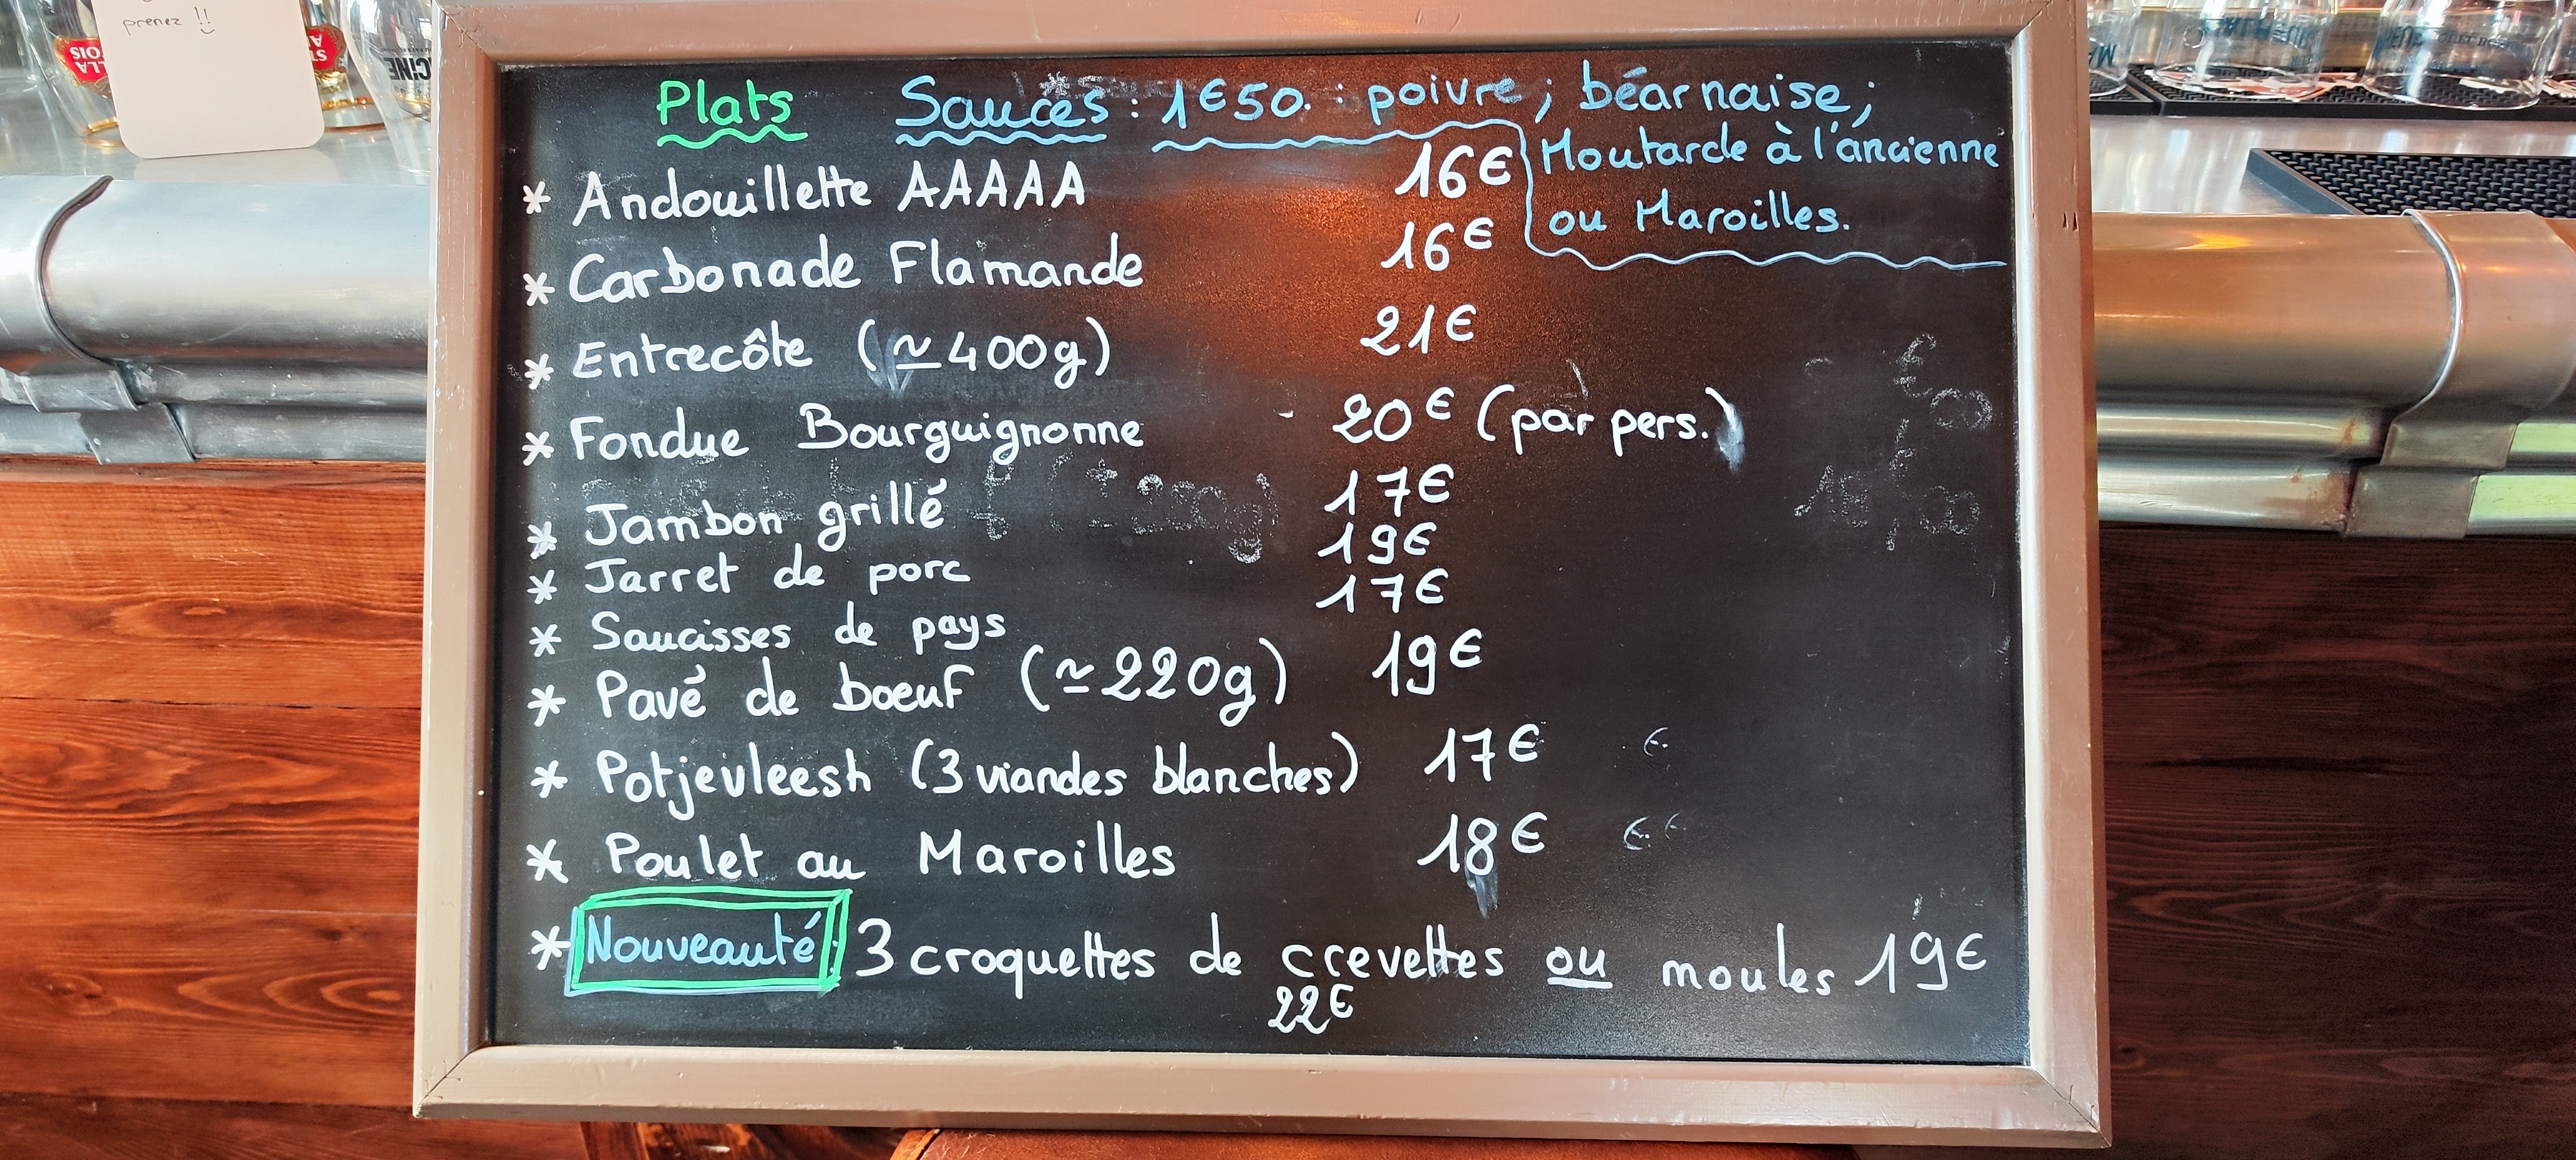 prenez !!
Plats
Sauces : 1€50 : poivre ; béarnaise ;
Moutarde à l'ancienne
ou Maroilles.
* Andouillette AAAAA 16€
* Carbonade Flamande 16€
* Entrecôte (≃400g) 21€
* Fondue Bourguignonne 20€ (par pers.)
* Jambon grillé 17€
* Jarret de porc 19€
* Saucisses de pays 17€
* Pavé de boeuf (≃220g) 19€
* Potjevleesh (3 viandes blanches) 17€
* Poulet au Maroilles 18€
* Nouveauté 3 croquettes de crevettes ou moules 19€
22€